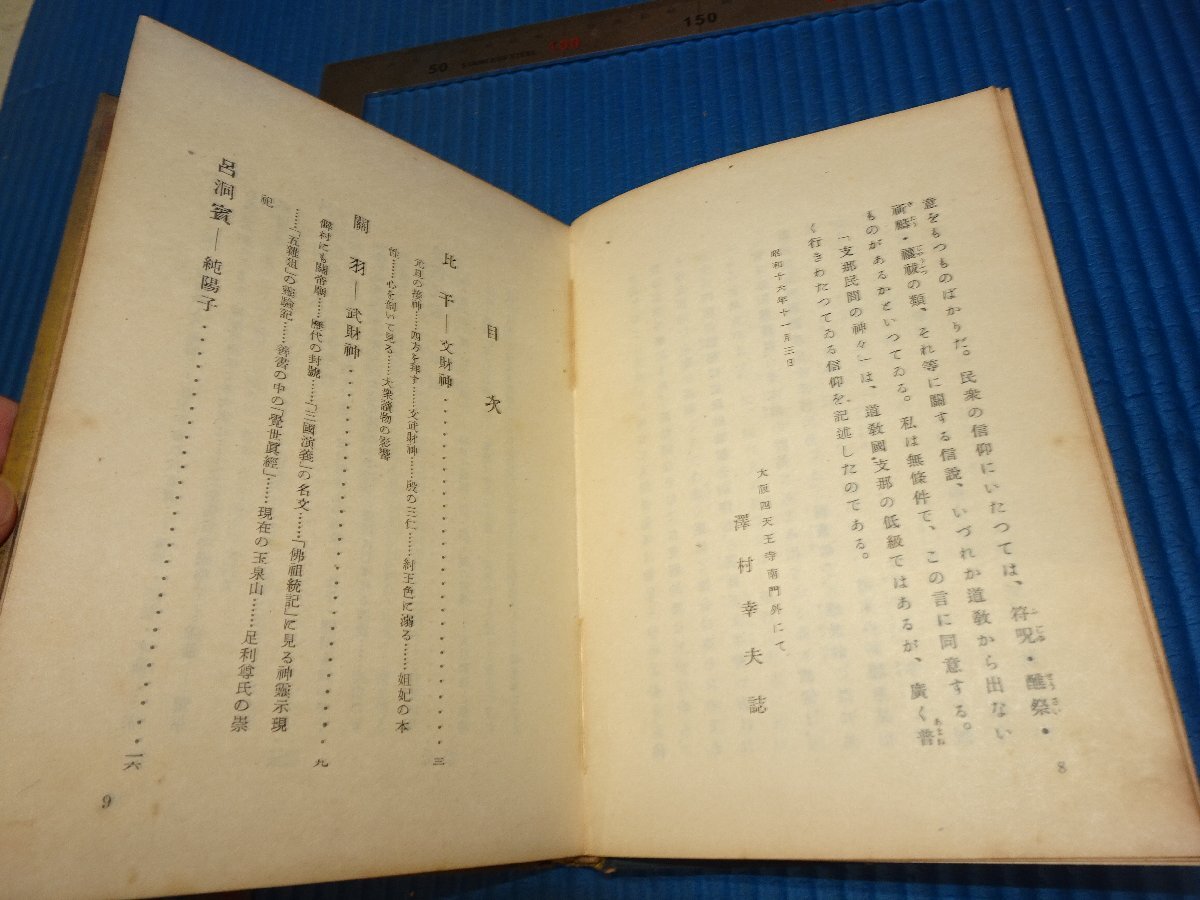 意をもつものばかりだ。民衆の信仰にいたつては、符呪・醮祭・
祈禱・禳祓の類、それ等に關する信說、いづれか道敎から出ない
ものがあるかといつてゐる。私は無條件で、この言に同意する。
「支那民間の神々」は、道敎國支那の低級ではあるが、廣く普
く行きわたつてゐる信仰を記述したのである。
昭和十六年十一月三日
大阪四天王寺南門外にて
澤村幸夫誌
8
目次
比干——文財神・・・・・・・・・・三
元旦の接神……四方を拜す……文武財神……殷の三仁……紂王色に溺る……妲妃の本
性……心を剖いて見る……大衆讀物の影響
關羽——武財神・・・・・・・・・・九
僻村にも關帝廟……歷代の封號……「三國演義」の名文……「佛祖統記」に見る神靈示現
……「五雜俎」の靈驗記……善書の中の「覺世眞經」……現在の玉泉山……足利尊氏の崇
祀
呂洞賓——純陽子・・・・・・・・・・一六
9
50
STAINLESS STEEL
100
150